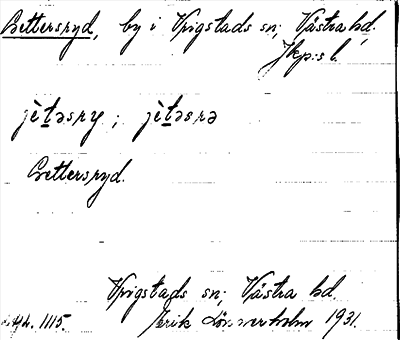 Getterspyd, by i Vrigstads sn; Västra hd,
Jkp:s l.
jètəsry ; jètəsrə
Getterspyd.
Vrigstads sn; Västra hd.
Acc. 1115. Erik Lönnerholm 1931.